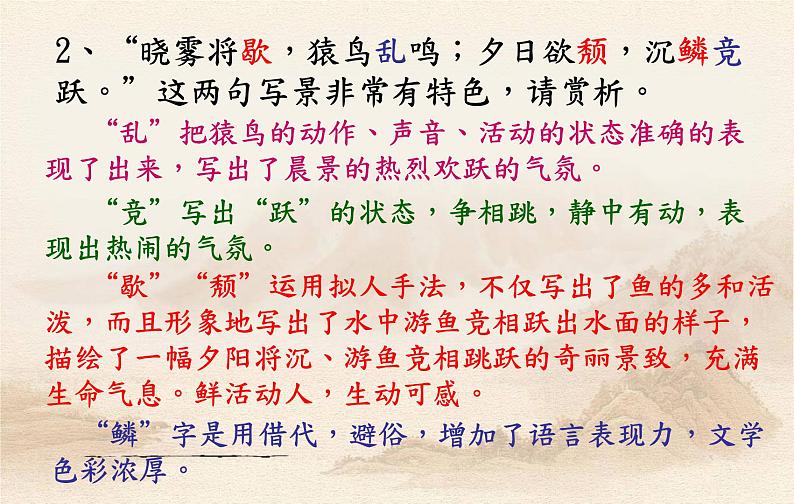 2、“晓雾将歇，猿鸟乱鸣；夕日欲颓，沉鳞竞
跃。”这两句写景非常有特色，请赏析。
“乱”把猿鸟的动作、声音、活动的状态准确的表
现了出来，写出了晨景的热烈欢跃的气氛。
“竞”写出“跃”的状态，争相跳，静中有动，表
现出热闹的气氛。
“歇”“颓”运用拟人手法，不仅写出了鱼的多和活
泼，而且形象地写出了水中游鱼竞相跃出水面的样子，
描绘了一幅夕阳将沉、游鱼竞相跳跃的奇丽景致，充满
生命气息。鲜活动人，生动可感。
“鳞”字是用借代，避俗，增加了语言表现力，文学
色彩浓厚。